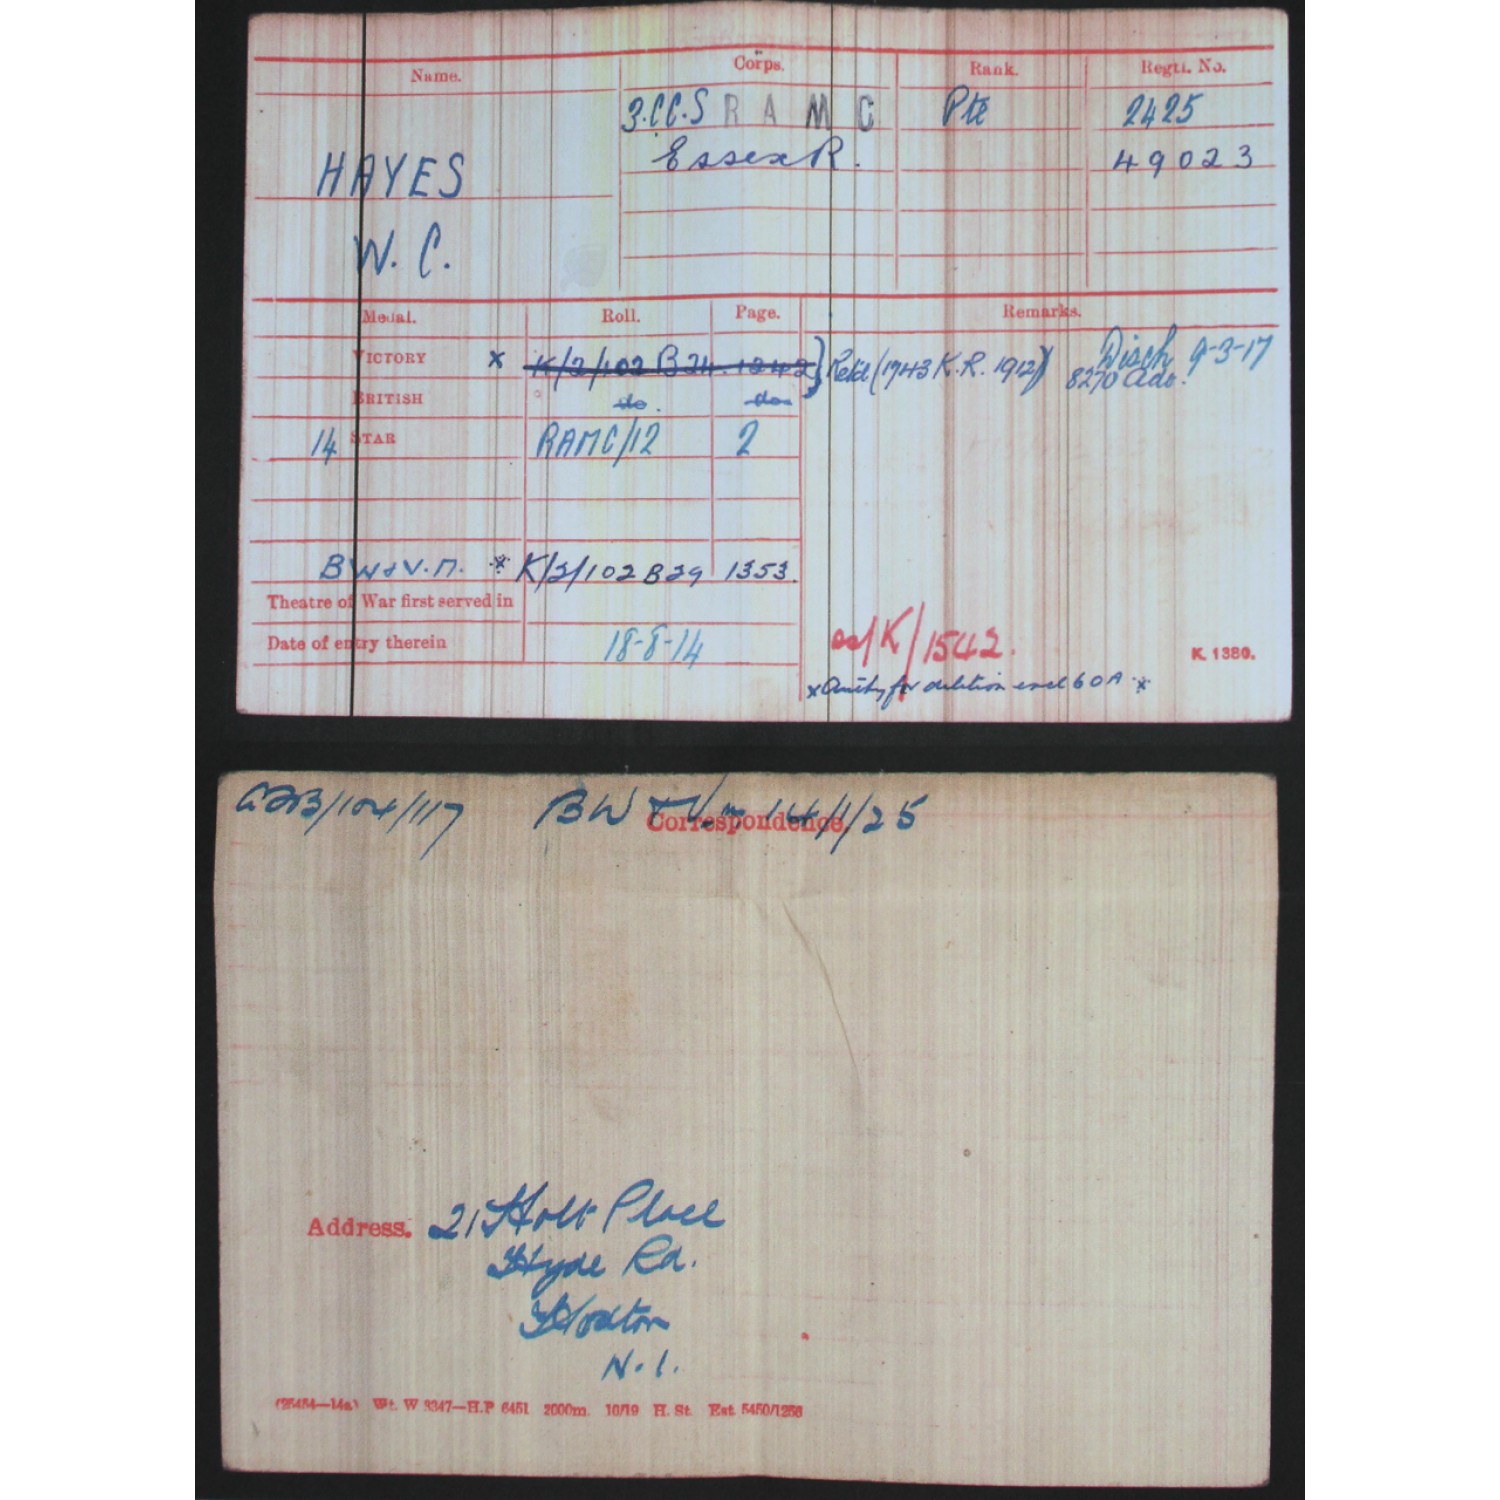 Name. Corps. Rank. Regtl. No.
3.CC.S R A M C Pte 2425
HAYES Essex R. 49023
W. C.
Medal. Roll. Page. Remarks.
VICTORY x K/2/102 B24. 1242 Retd (1743 K.R. 1912) Disch 9-3-17
8270 Adt.
BRITISH do. do.
14 STAR RAMC/12 2
BW & V.M. * K/2/102 B29 1353.
Theatre of War first served in
Date of entry therein 18-8-14
K/1542. K. 1380.
x Auth for deletion encl 60A x
/104/117 BW & V.M 14/1/25
Correspondence.
Address. 21 Holt Place
Hyde Rd.
Hoxton
N.1.
(26454—14a) Wt. W 3347—H.P 6451 2000m. 10/19 H. St. Est. 5450/1256